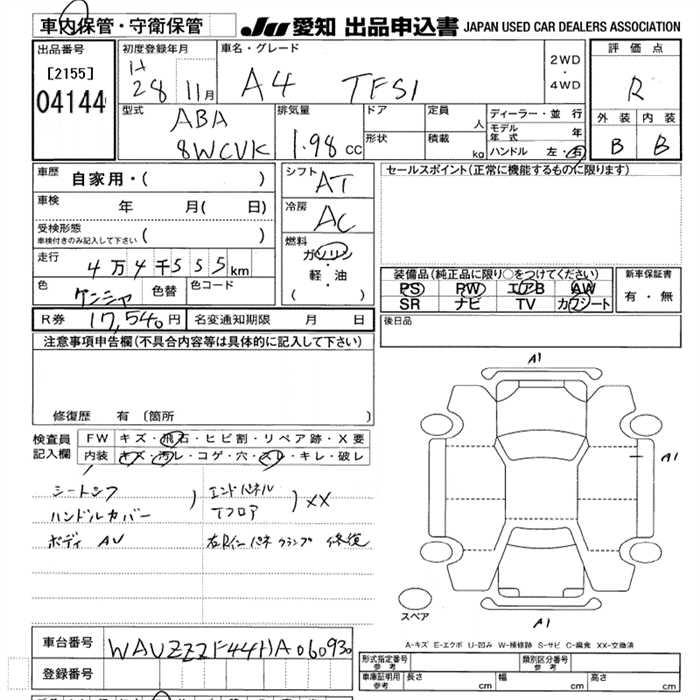 車内保管・守衛保管
JU 愛知 出品申込書 JAPAN USED CAR DEALERS ASSOCIATION
出品番号
[2155]
04144
初度登録年月
H
28 11月
車名・グレード
A4 TFSI
2WD
・
4WD
評価点
R
外装 内装
B B
型式
ABA
8WCVK
排気量
1.98 cc
ドア
定員
人
形状
積載
kg
ディーラー・並行
モデル年式 年
ハンドル 左・右
車歴
自家用・( )
車検
年 月( 日)
受検形態
車検付きのみ記入して下さい ( )
走行
4万4千555km
色
色替
色コード
シフト
AT
冷房
AC
燃料
ガソリン
・
軽・油
( )
セールスポイント(正常に機能するものに限ります)
装備品(純正品に限り○をつけてください)
PS PW エアB AW
SR ナビ TV カワシート
新車保証書
有・無
R券 17,540円
名変通知期限 月 日
後日品
注意事項申告欄(不具合内容等は具体的に記入して下さい)
修復歴 有 〔箇所 〕
検査員
記入欄
FW キズ・飛石・ヒビ割・リペア跡・X要
内装 キズ・汚レ・コゲ・穴・スレ・キレ・破レ
シートシワ
ハンドルカバー
ボディ AU
エンドパネル
Tフロア
XX
右Rインパネ クランプ 修復
A1
A1
A1
スペア
A-キズ E-エクボ U-凹み W-補修跡 S-サビ C-腐食 XX-交換済
車台番号
WAUZZZF44HA060930
登録番号
形式指定番号
参考
類別区分番号
参考
車庫証明用
参考
長さ cm
幅 cm
高さ cm